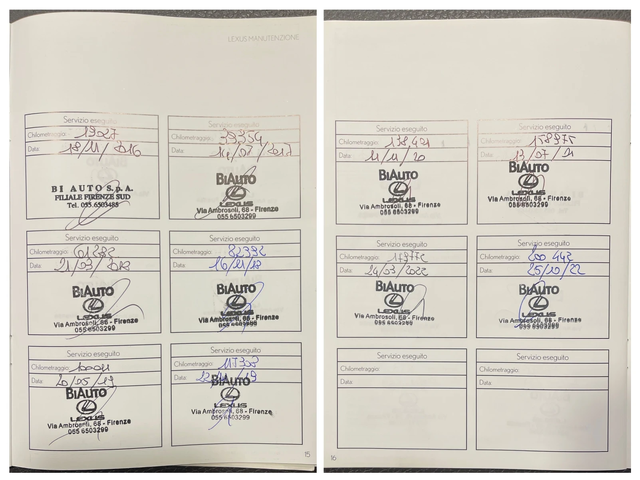 LEXUS MANUTENZIONE
Servizio eseguito
Chilometraggio: 19027
Data: 18/11/2016
BI AUTO S.p.A.
FILIALE FIRENZE SUD
Tel. 055.6503485
Servizio eseguito
Chilometraggio: 39354
Data: /2017
BIAUTO
LEXUS
Via Ambrosoli, 68 - Firenze
055 6503299
Servizio eseguito
Chilometraggio: 61282
Data: 21/03/2018
BIAUTO
LEXUS
Via Ambrosoli, 68 - Firenze
055 6503299
Servizio eseguito
Chilometraggio: 82392
Data: 16/11/18
BIAUTO
LEXUS
Via Ambrosoli, 68 - Firenze
055 6503299
Servizio eseguito
Chilometraggio:
Data: 20/05/19
BIAUTO
LEXUS
Via Ambrosoli, 68 - Firenze
055 6503299
Servizio eseguito
Chilometraggio: 117308
Data: /19
BIAUTO
LEXUS
Via Ambrosoli, 68 - Firenze
055 6503299
15
Servizio eseguito
Chilometraggio: 138421
Data: 11/11/20
BIAUTO
LEXUS
Via Ambrosoli, 68 - Firenze
055 6503299
Servizio eseguito
Chilometraggio: 158975
Data: 13/07/21
BIAUTO
LEXUS
Via Ambrosoli, 68 - Firenze
055 6503299
Servizio eseguito
Chilometraggio:
Data: 24/03/2022
BIAUTO
LEXUS
Via Ambrosoli, 68 - Firenze
055 6503299
Servizio eseguito
Chilometraggio: 200 442
Data: 25/10/22
BIAUTO
LEXUS
Via Ambrosoli, 68 - Firenze
055 6503299
Servizio eseguito
Chilometraggio:
Data:
Servizio eseguito
Chilometraggio:
Data:
16